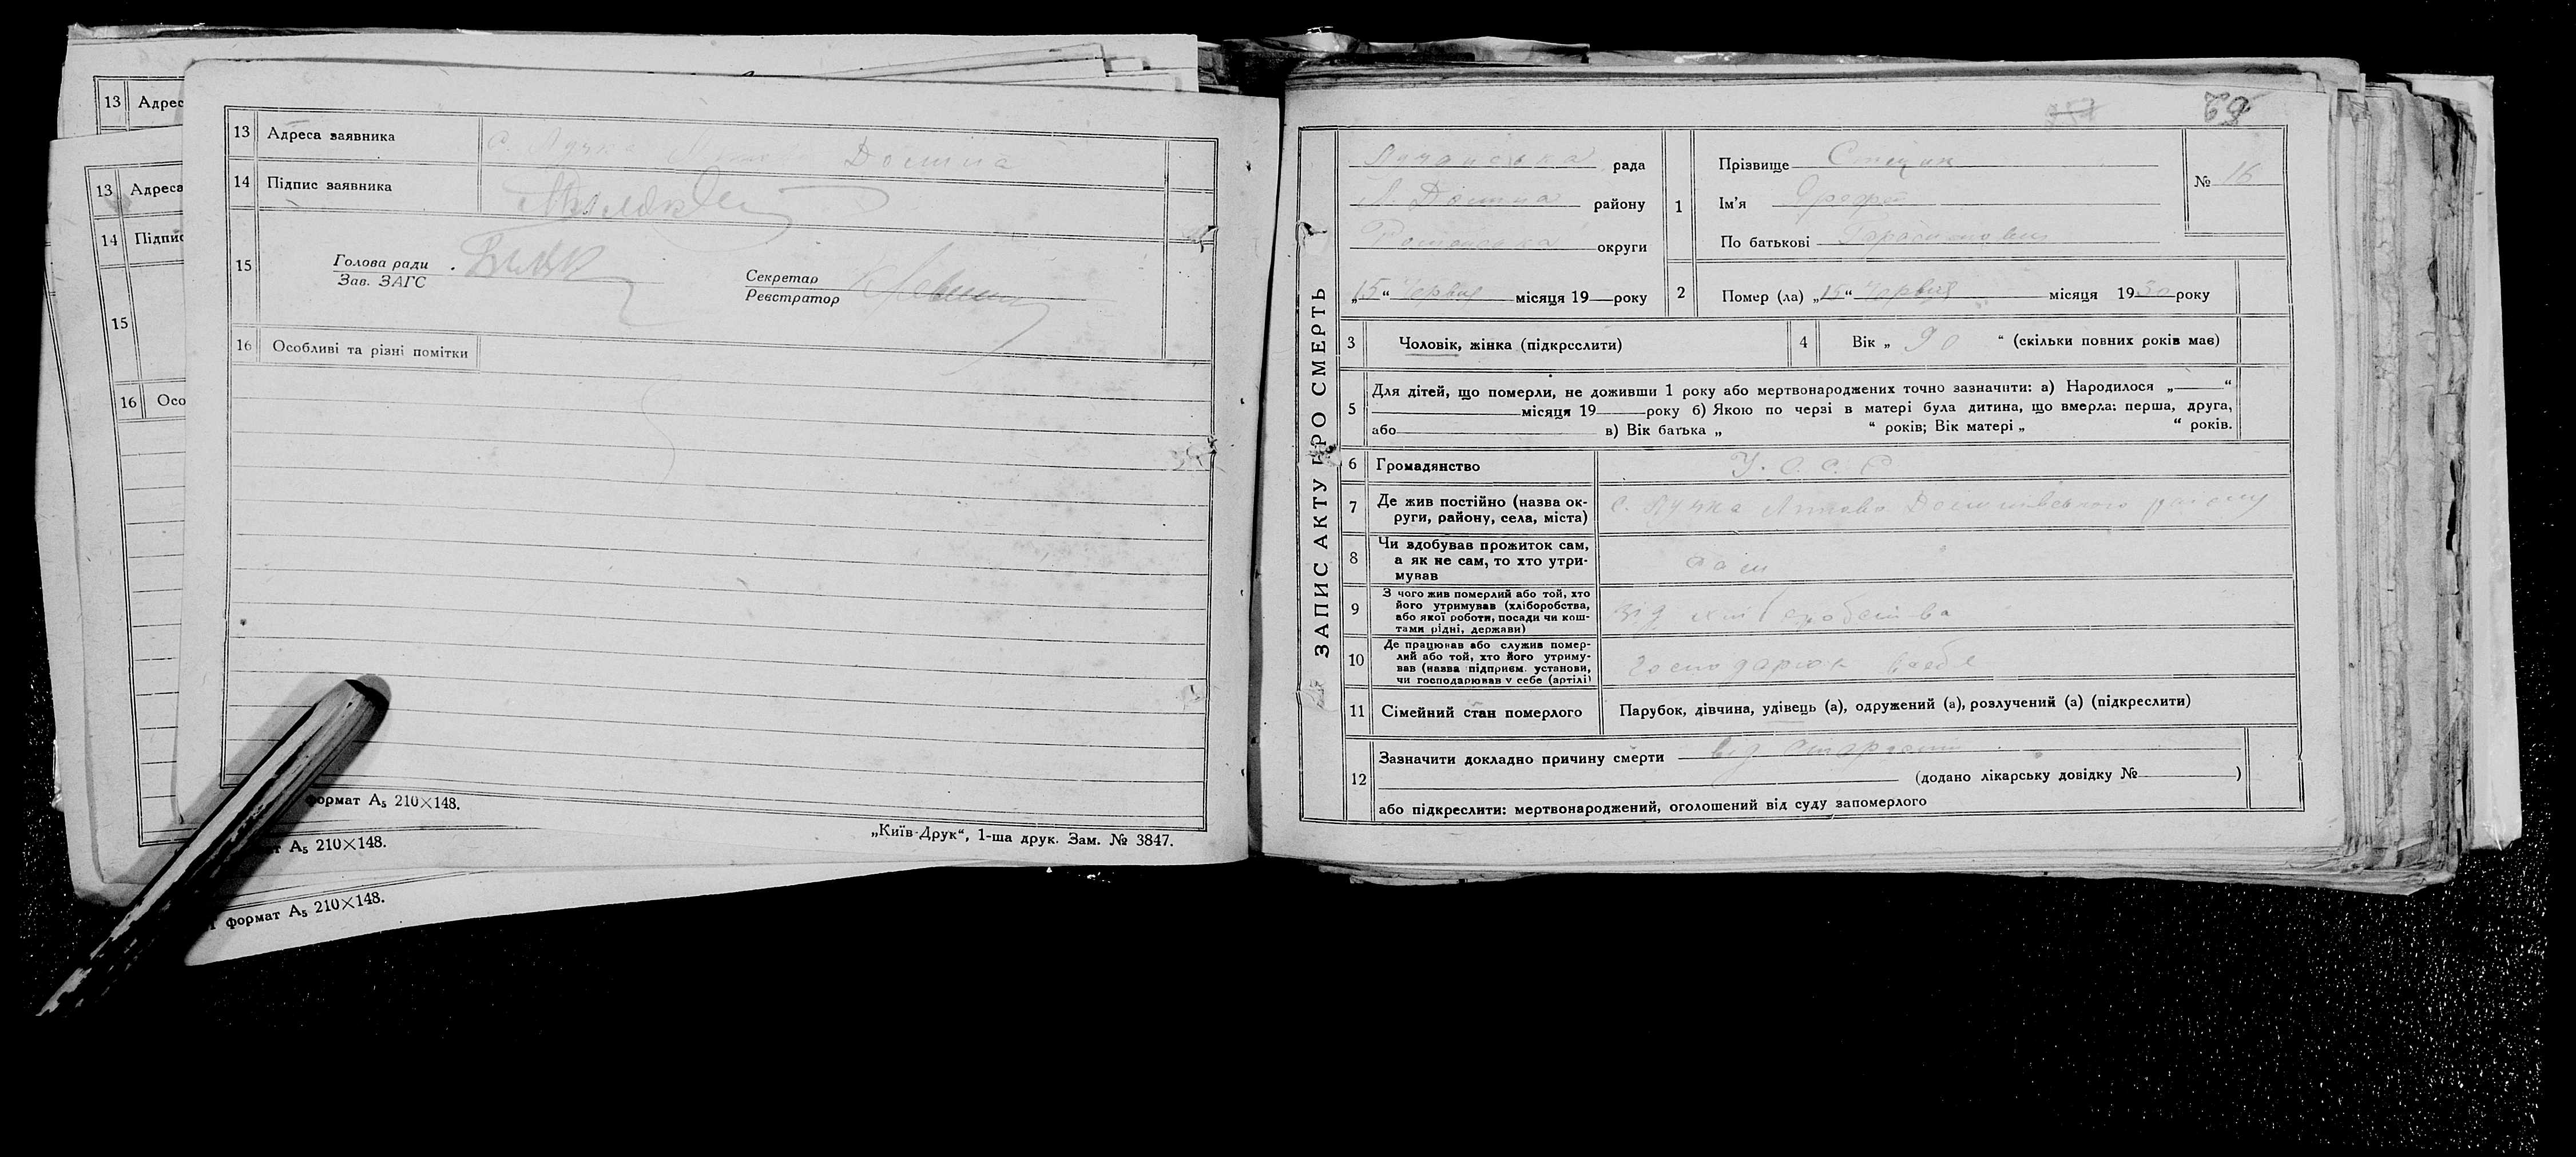 13 Адрес
13 Адреса
14 Підпис
15
16 Осо
13 Адреса заявника С. Лучка Долина
14 Підпис заявника
15 Голова ради
Зав. ЗАГС
Секретар
Реєстратор
16 Особливі та різні помітки
формат А₅ 210×148.
„Київ-Друк“, 1-ша друк. Зам. № 3847.
т А₅ 210×148.
формат А₅ 210×148.
69
ЗАПИС АКТУ ПРО СМЕРТЬ
Лучанська рада
Л. Долина району
Роменська округи
„15“ Червня місяця 19 року
1 Прізвище
Ім'я
По батькові Герасимович
№ 16
2 Помер (ла) „15“ Червня місяця 1930 року
3 Чоловік, жінка (підкреслити)
4 Вік „ 90 “ (скільки повних років мав)
5 Для дітей, що померли, не доживши 1 року або мертвонароджених точно зазначити: а) Народилося „ “
місяця 19 року б) Якою по черзі в матері була дитина, що вмерла: перша, друга,
або в) Вік батька „ “ років; Вік матері „ “ років.
6 Громадянство У. С. С. Р
7 Де жив постійно (назва ок-
руги, району, села, міста) с. Лучка Липово Долинського району
8 Чи здобував прожиток сам,
а як не сам, то хто утри-
мував
сам
9 З чого жив померлий або той, хто
його утримував (хліборобства,
або якої роботи, посади чи кош-
тами рідні, держави)
від хліборобства
10 Де працював або служив помер-
лий або той, хто його утриму-
вав (назва підприєм. установи,
чи господарював у себе (артілі)
господарюв в себе
11 Сімейний стан померлого Парубок, дівчина, удівець (а), одружений (а), розлучений (а) (підкреслити)
12 Зазначити докладно причину смерти від старости
(додано лікарську довідку № )
або підкреслити: мертвонароджений, оголошений від суду запомерлого